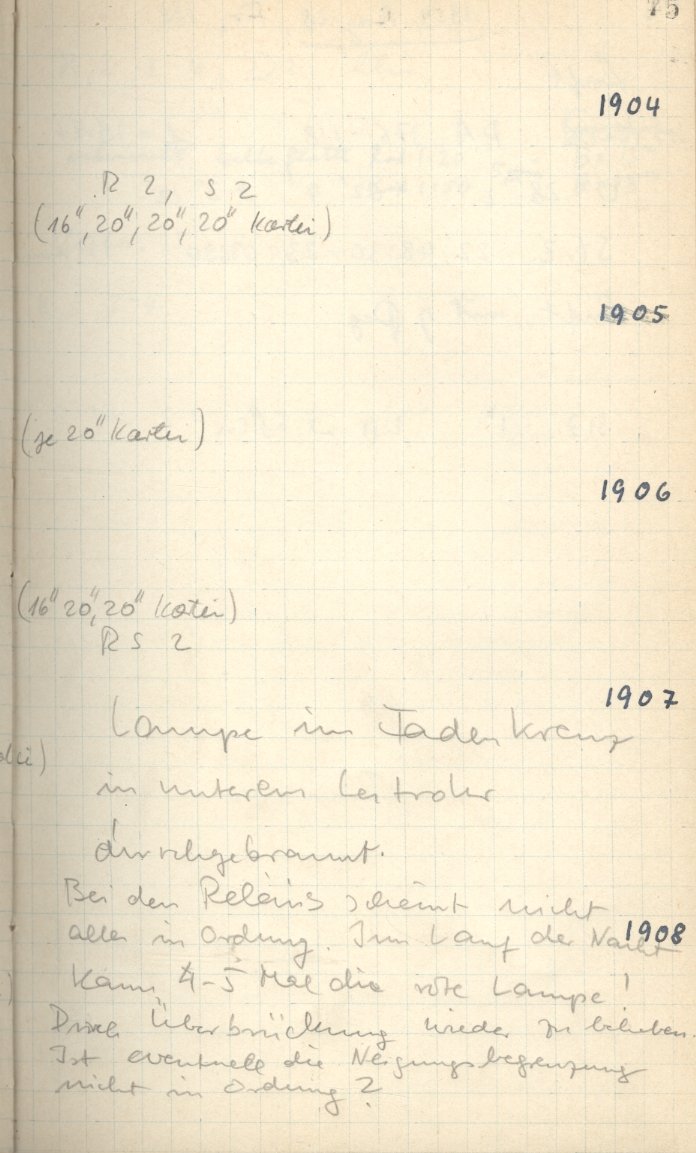 75
1904
R 2, S 2
(16", 20", 20", 20" Kartei)
1905
(je 20" Kartei)
1906
(16" 20", 20" Kartei)
R S 2
1907
Lampe im Fadenkreuz
in unterem Leitrohr
durchgebrannt.
Bei den Relais scheint nicht
alles in Ordnung. Im Lauf der Nacht
1908
kam 4-5 Mal die rote Lampe!
Durch Überbrückung wieder zu beheben.
Ist eventuell die Neigungsbegrenzung
nicht in Ordnung?